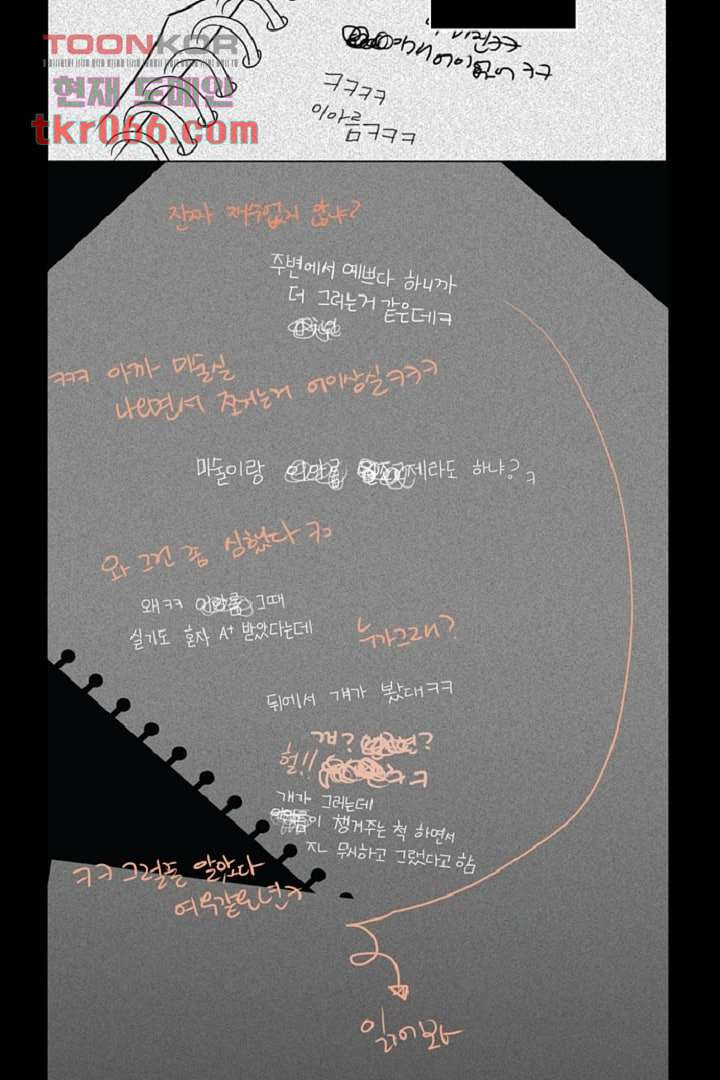 TOONKOR
현재 도메인
tkr066.com
ㅋㅋㅋㅋ
이아름ㅋㅋㅋ
진짜 재수없지 않냐?
주변에서 예쁘다 하니까
더 그러는거 같은데ㅋ
ㅋㅋㅋ 아까 미술실
나오면서 쪼개는거 어이상실ㅋㅋㅋ
미술이랑 제라도 하냐?ㅋ
와 그건 좀 심했다 ㅋㅋ
왜ㅋㅋ 그때
실기도 혼자 A+ 받았다는데
누가그래?
뒤에서 걔가 봤대ㅋㅋ
걔?
헐!! ㅋㅋ
걔가 그러는데
이 챙겨주는 척 하면서
지ㄴ 무시하고 그랬다고 함
ㅋㅋ 그럴줄 알았다
여우같은년ㅋ
읽어봐